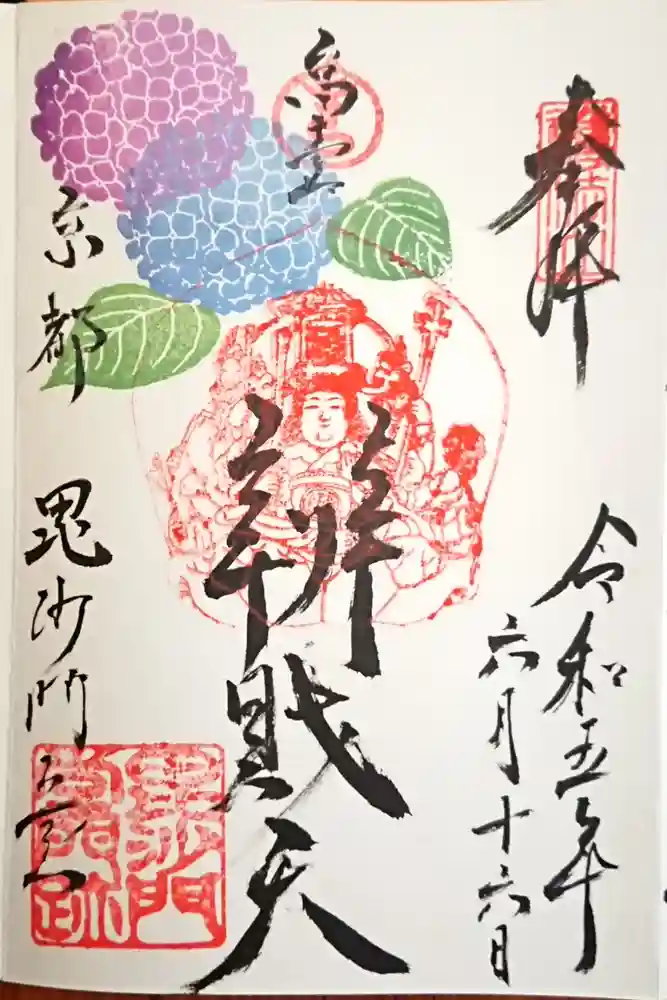 奉拝
令和五年
六月十六日
高臺
辨財天
京都
毘沙門堂